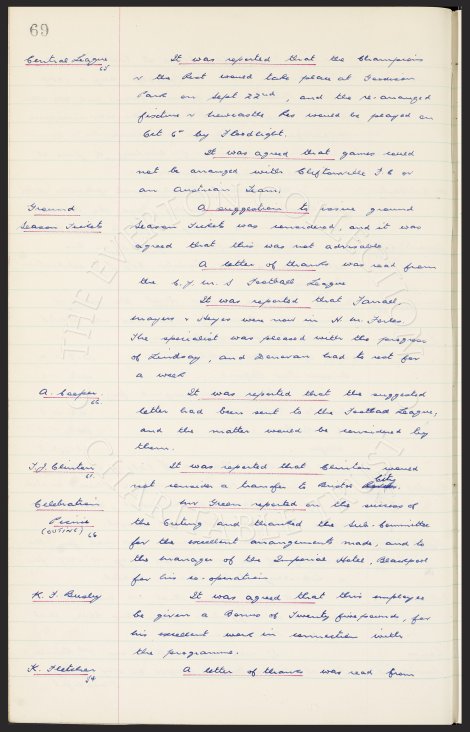 69
Central League
65
It was reported that the Champions
v the Rest would take place at Goodison
Park on Sept 22nd, and the re-arranged
fixture v Newcastle Res would be played on
Oct 6th by Floodlight.
It was agreed that games could
not be arranged with Cliftonville F C or
an Austrian Team.
Ground
Season Tickets
A suggestion to issue ground
Season Tickets was considered, and it was
agreed that this was not advisable.
A letter of thanks was read from
the C.Y.M.S Football League
It was reported that Farrell,
Mayers & Heyes were now in H. M. Forces.
The specialist was pleased with the progress
of Lindsay, and Donovan had to rest for
a week
A. Cooper
62
It was reported that the suggested
letter had been sent to the Football League;
and the matter would be considered by
them.
T.J. Clinton
61
It was reported that Clinton would
not consider a transfer to Bristol City
Celebration
Picnic
(OUTING) 66
Mr Green reported on the success of
the Outing and thanked the Sub-Committee
for the excellent arrangements made, and to
the manager of the Imperial Hotel, Blackpool
for his co-operation
K. J. Busby
It was agreed that this employee
be given a Bonus of Twenty five pounds, for
his excellent work in connection with
the programme.
K. Fletcher
54
A letter of thanks was read from
THE EVERTON COLLECTION
CHARITABLE TRUST